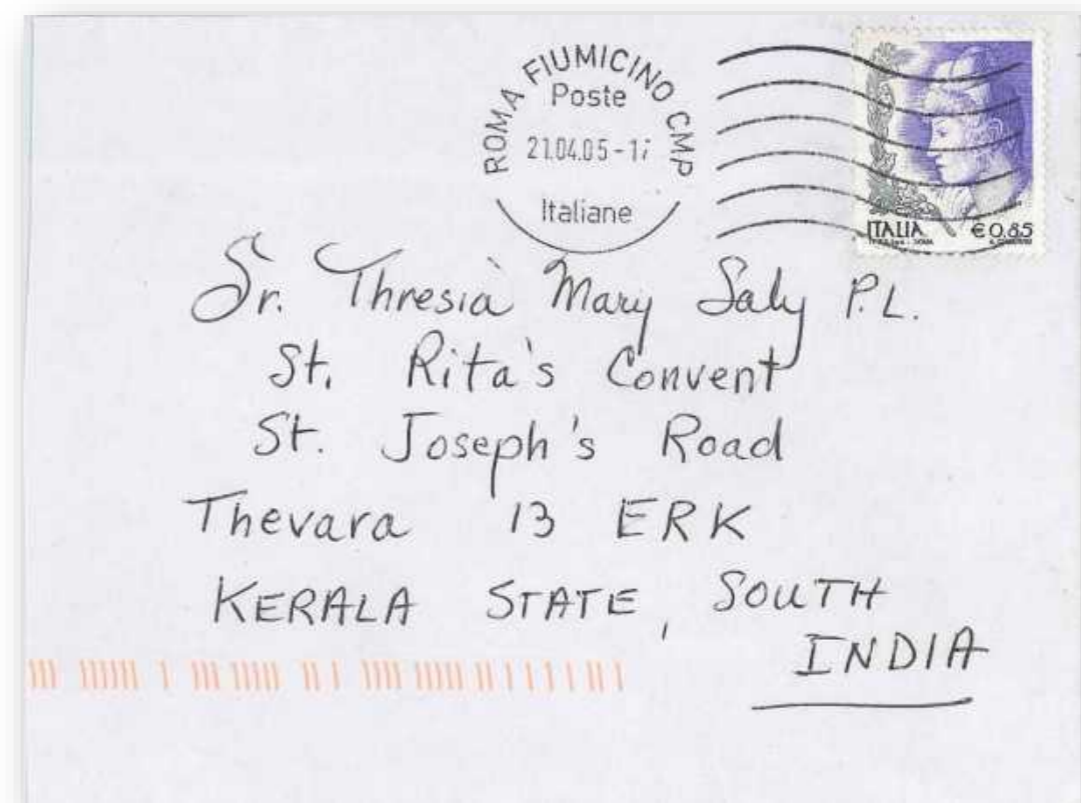 ROMA FIUMICINO CMP
Poste
21.04.05-17
Italiane
ITALIA €0.85
Sr. Thresia Mary Saly P.L.
St. Rita's Convent
St. Joseph's Road
Thevara 13 ERK
KERALA STATE, SOUTH
INDIA